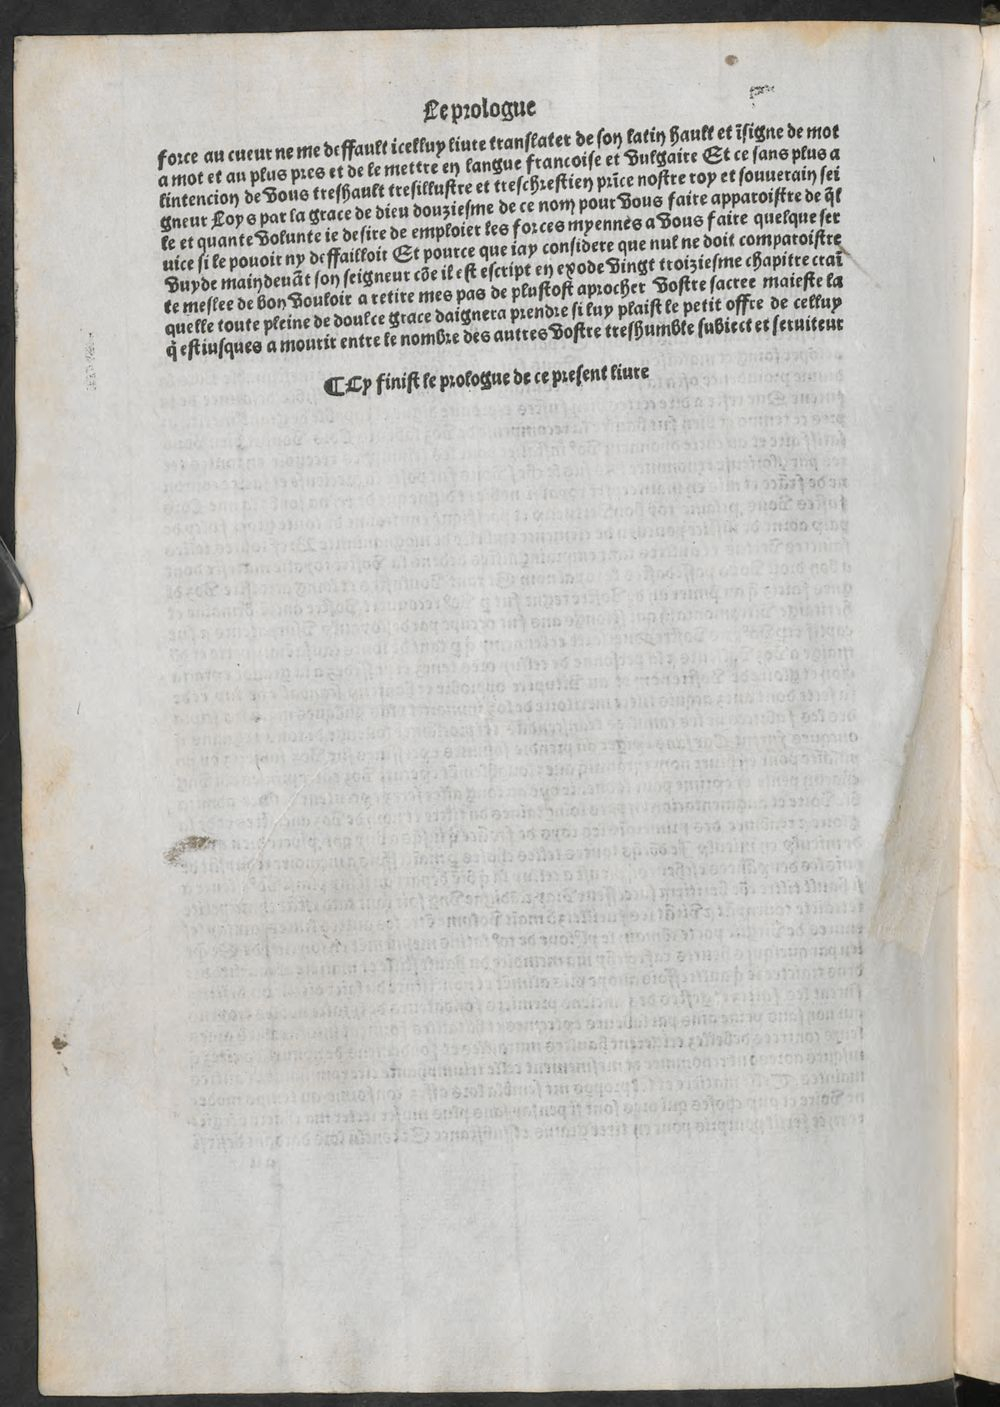 Le prologue
force au cueur ne me deffault icelluy liure translater de son latin hault et īsigne de mot
a mot et au plus pres et de le mettre en langue francoise et vulgaire Et ce sans plus a
lintencion de vous treshault tresillustre et treschrestien prīce nostre roy et souuerain sei
gneur Loys par la grace de dieu douziesme de ce nom pour vous faire apparoistre de q̄l
le et quante volunte ie desire de emploier les forces myennes a vous faire quelque ser
uice si le pouoir ny deffailloit Et pource que iay considere que nul ne doit comparoistre
vuyde main deuāt son seigneur cōe il est escript en exode vingt troiziesme chapitre crai
te meslee de bon vouloir a retire mes pas de plustost aprocher vostre sacree maieste la
quelle toute pleine de doulce grace daignera prendre si luy plaist le petit offre de celluy
q̇ est iusques a mourir entre le nombre des autres vostre treshumble subiect et seruiteur
¶ Cy finist le prologue de ce present liure